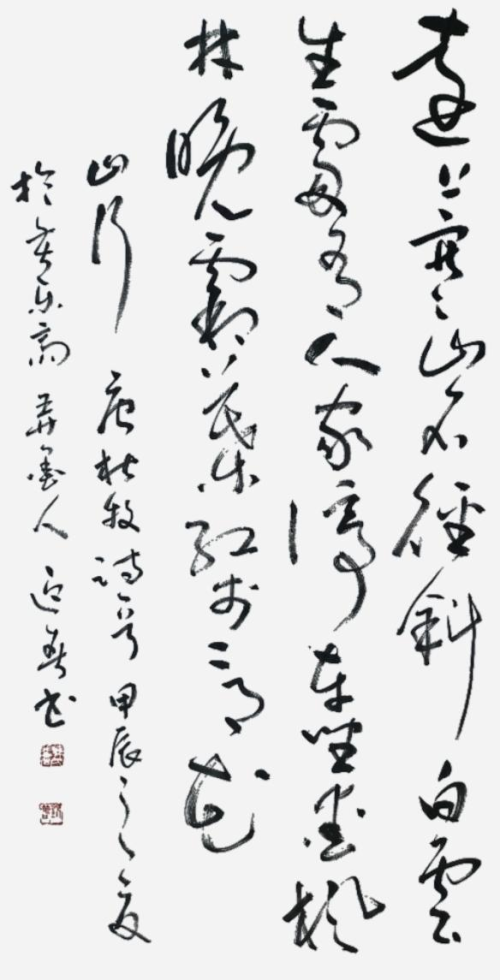 遠上寒山石徑斜白雲
生處有人家停車坐愛楓
林晚霜葉紅於二月花
山行 唐杜牧詩一首 甲辰之夏
於樂齋 墨人 迎春書